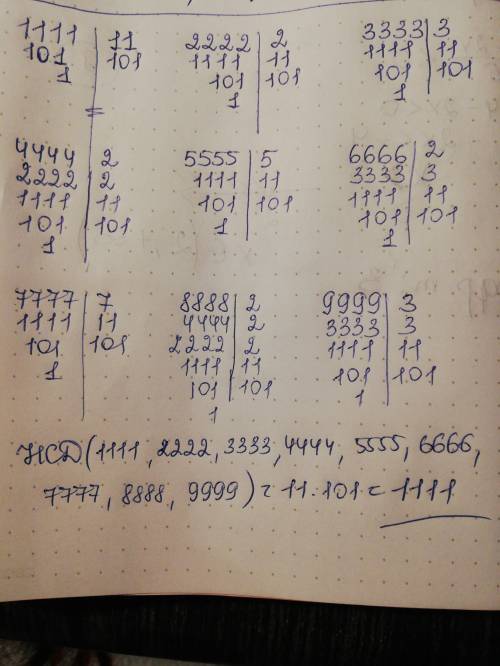 1111 | 11
101 | 101
1
2222 | 2
1111 | 11
101 | 101
1
3333 | 3
1111 | 11
101 | 101
1
4444 | 2
2222 | 2
1111 | 11
101 | 101
1
5555 | 5
1111 | 11
101 | 101
1
6666 | 2
3333 | 3
1111 | 11
101 | 101
1
7777 | 7
1111 | 11
101 | 101
1
8888 | 2
4444 | 2
2222 | 2
1111 | 11
101 | 101
1
9999 | 3
3333 | 3
1111 | 11
101 | 101
1
НСД (1111, 2222, 3333, 4444, 5555, 6666,
7777, 8888, 9999) = 11·101 = 1111